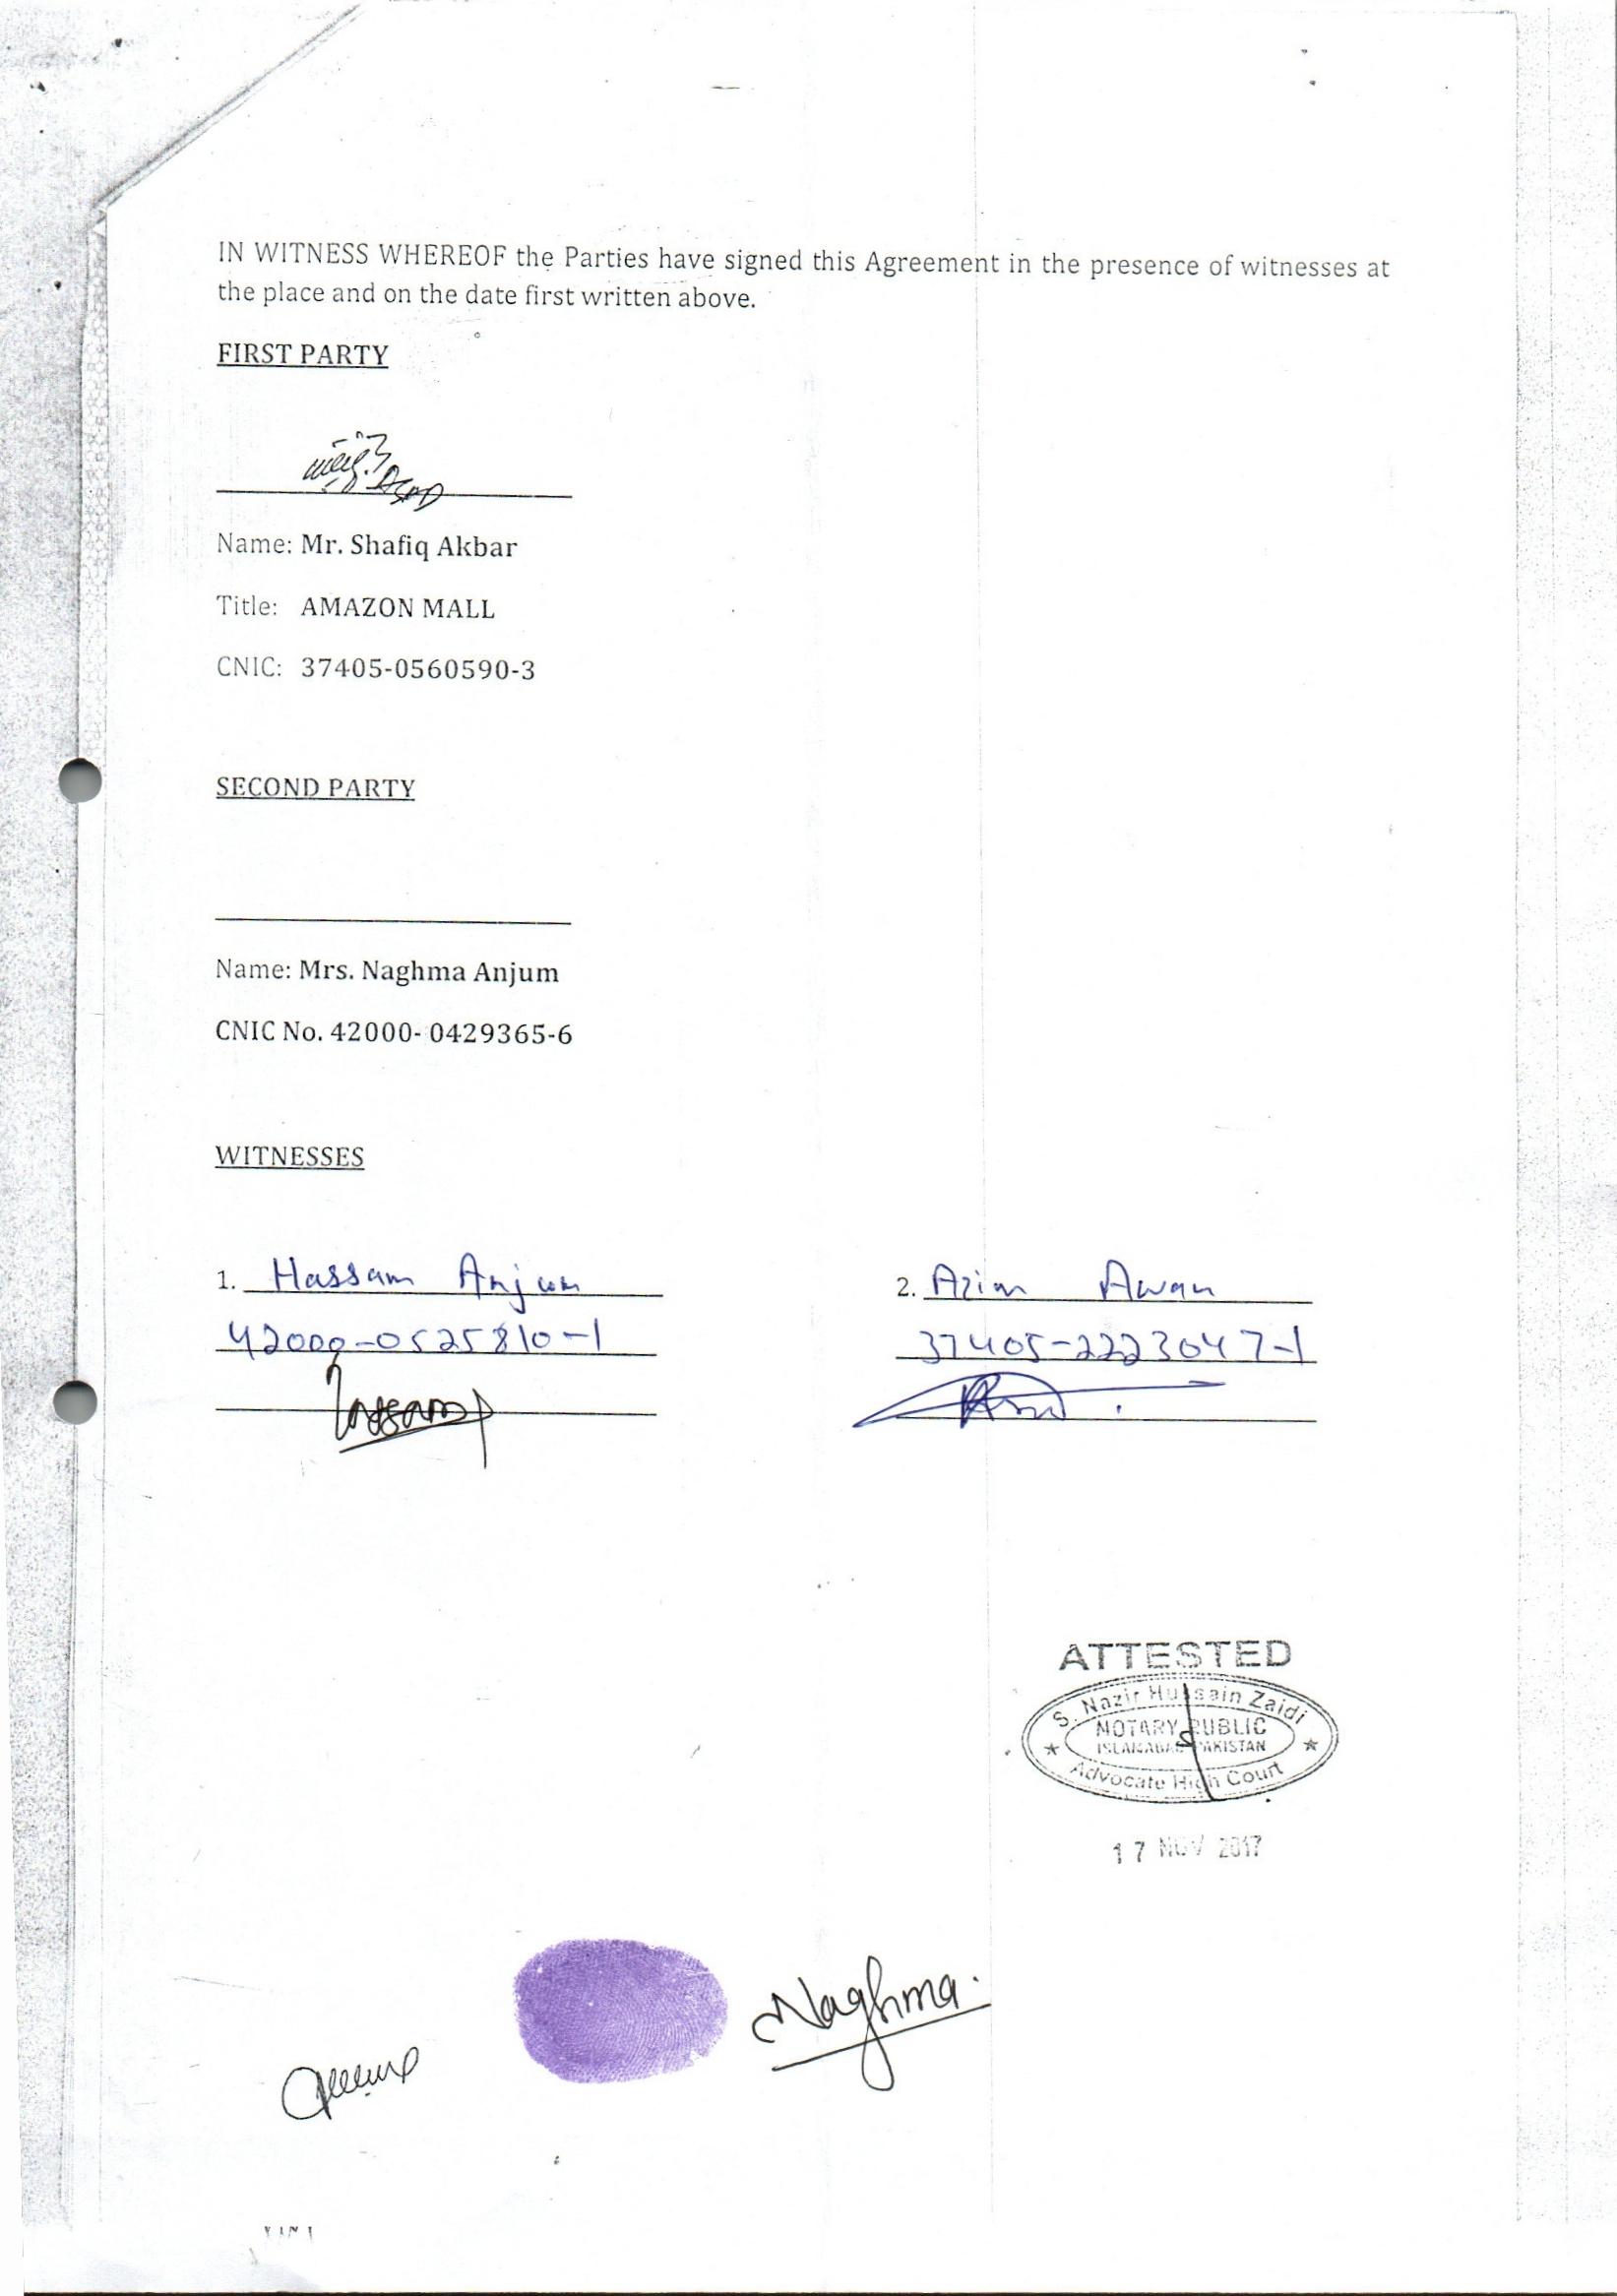 IN WITNESS WHEREOF the Parties have signed this Agreement in the presence of witnesses at
the place and on the date first written above.
FIRST PARTY
Name: Mr. Shafiq Akbar
Title: AMAZON MALL
CNIC: 37405-0560590-3
SECOND PARTY
Name: Mrs. Naghma Anjum
CNIC No. 42000- 0429365-6
WITNESSES
1. Hassam Anjum
42000-0525810-1
Hassam
2. Azim Awan
37405-2223047-1
ATTESTED
S. Nazir Hussain Zaidi
NOTARY PUBLIC
ISLAMABAD PAKISTAN
Advocate High Court
17 NOV 2017
Naghma.